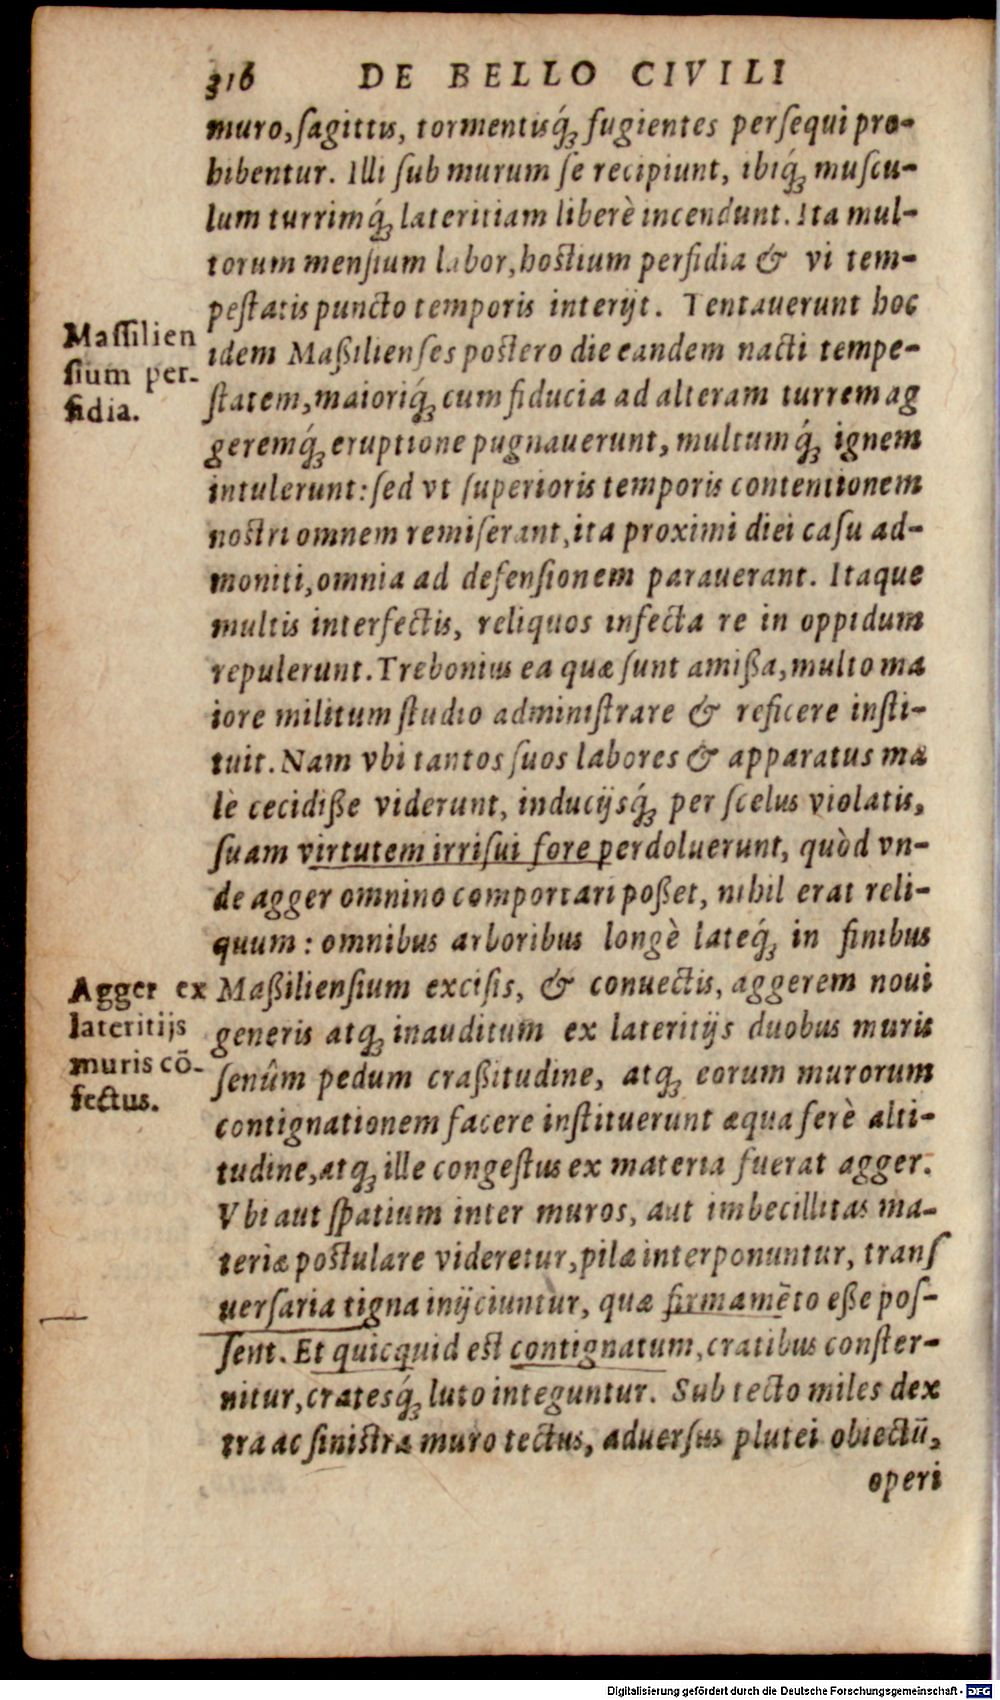 316 DE BELLO CIVILI
muro, ſagittis, tormentisq́; fugientes perſequi pro-
hibentur. Illi ſub murum ſe recipiunt, ibiq́; muſcu-
lum turrimq́; lateritiam liberè incendunt. Ita mul-
torum menſium labor, hostium perfidia & vi tem-
peſtatis puncto temporis interijt. Tentauerunt hoc
Maſſilien
ſium per-
fidia.
idem Maßilienſes postero die eandem nacti tempe-
ſtatem, maioriq́; cum fiducia ad alteram turrem ag
geremq́; eruptione pugnauerunt, multumq́; ignem
intulerunt: ſed vt ſuperioris temporis contentionem
nostri omnem remiſerant, ita proximi diei caſu ad-
moniti, omnia ad defenſionem parauerant. Itaque
multis interfectis, reliquos infecta re in oppidum
repulerunt. Trebonius ea quæ ſunt amißa, multo ma
iore militum ſtudio adminiſtrare & reficere inſti-
tuit. Nam vbi tantos ſuos labores & apparatus ma
lè cecidiße viderunt, inducijsq́; per ſcelus violatis,
ſuam virtutem irriſui fore perdoluerunt, quòd vn-
de agger omnino comportari poßet, nihil erat reli-
quum: omnibus arboribus longè lateq́; in finibus
Agger ex
lateritijs
muris cō-
fectus.
Maßilienſium exciſis, & conuectis, aggerem noui
generis atq; inauditum ex lateritijs duobus muris
ſenûm pedum craßitudine, atq; eorum murorum
contignationem facere inſtituerunt æqua ferè alti-
tudine, atq; ille congeſtus ex materia fuerat agger.
Vbi aut ſpatium inter muros, aut imbecillitas ma-
teriæ postulare videretur, pilæ interponuntur, tranſ
uerſaria tigna inijciuntur, quæ firmamēto eße poſ-
ſent. Et quicquid est contignatum, cratibus conſter-
nitur, cratesq́; luto integuntur. Sub tecto miles dex
tra ac ſinistra muro tectus, aduerſus plutei obiectū,
operi
Digitalisierung gefördert durch die Deutsche Forschungsgemeinschaft - DFG